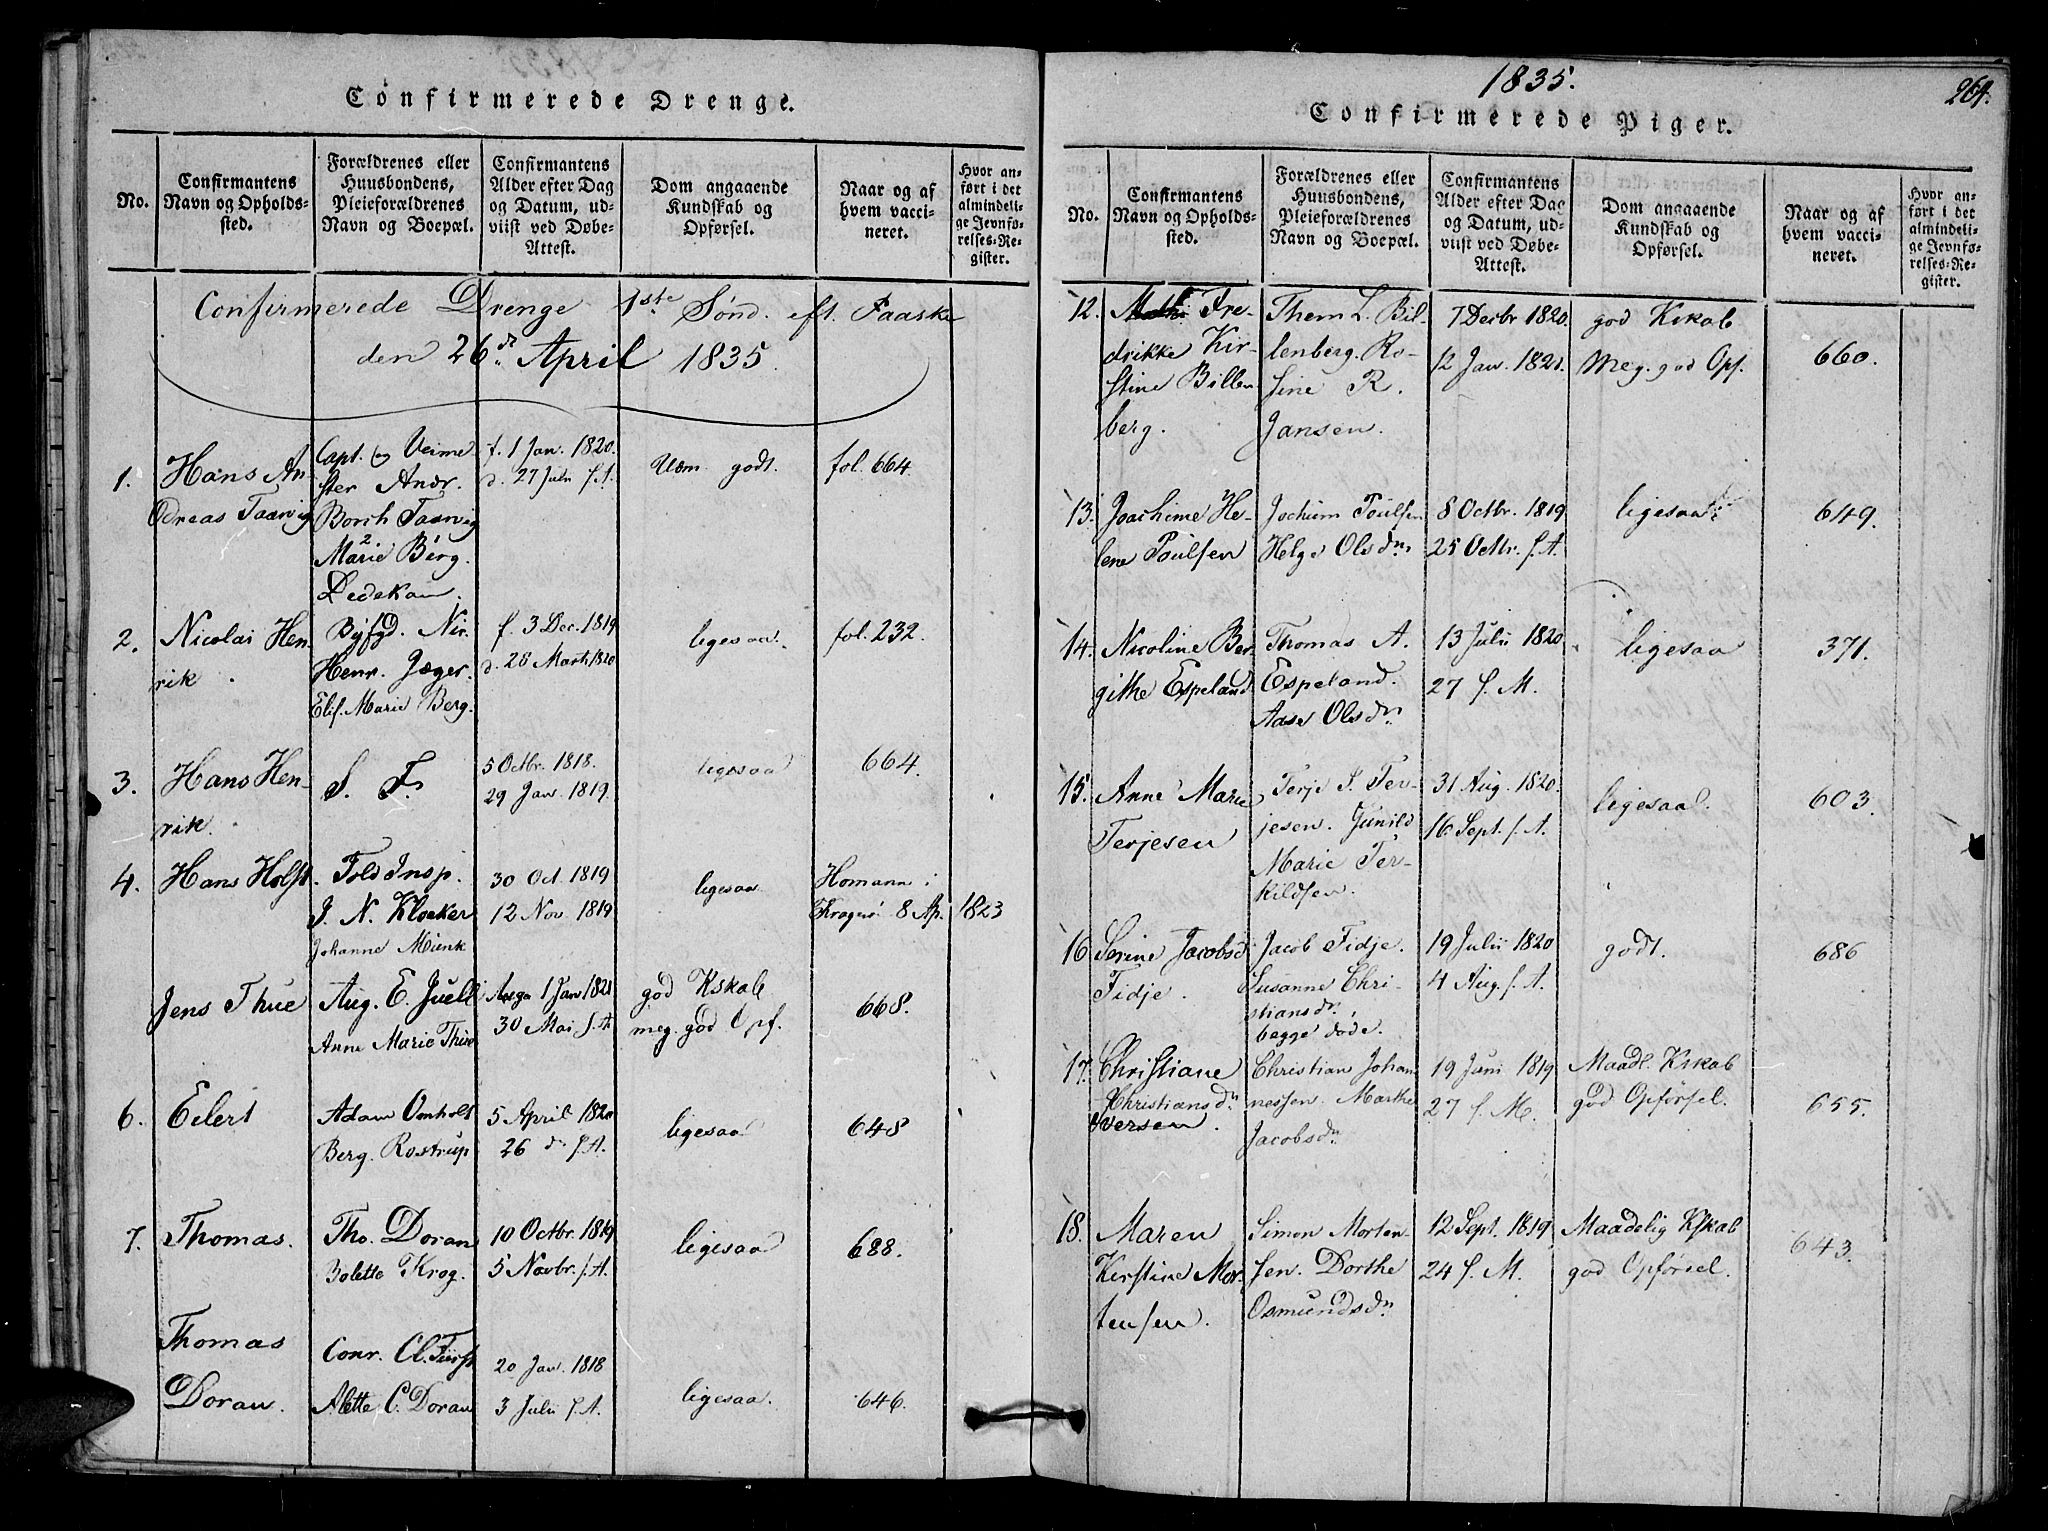 Confirmerede Drenge.
No.
Confirmantens
Navn og Opholds-
sted.
Forældrenes eller
Huusbondens,
Pleieforældrenes
Navn og Boepæl.
Confirmantens
Alder efter Dag
og Datum, ud-
viist ved Døbe-
Attest.
Dom angaaende
Kundskab og
Opførsel.
Naar og af
hvem vacci-
neret.
Hvor an-
ført i det
almindeli-
ge Jevnfø-
relses-Re-
gister.
Confirmerede Drenge 1ste Sønd. eft. Paaske
den 26de April 1835.
1.
Hans An-
dreas Taarvig
Capt. og Veime
ster Andr.
Borch Taarvig
Marie Berg.
Dedekam.
f. 1 Jan. 1820.
d. 27 Julii s. A.
Udm. godt.
fol. 664.
2.
Nicolai Hen
rik.
Byfgd. Nic.
Henr. Jæger.
Elis. Marie Berg.
f. 3 Dec. 1819
d. 28 Marti 1820
ligesaa.
fol. 232.
3.
Hans Hen-
rik.
S. F.
5 Octbr. 1818.
29 Jan. 1819.
ligesaa
664.
4.
Hans Holst.
Told Insp.
J. N. Klocker
Johanne Munk
30 Oct. 1819
12 Nov 1819
ligesaa
Homann i
Kragerø 8 Ap. 1823
Jens Thue
Aug. E. Juell
Anne Marie Thue
1 Jan 1821
30 Mai s. A
god Kskab
meg. god Opf.
668.
6.
Eilert
Adam Omholt
Berg. Rostrup
5 April 1820
26 d s. A.
ligesaa
648
7.
Thomas.
Tho. Doran
Bolette Krog.
10 Octbr. 1819
5 Novbr. s. A.
ligesaa
688.
Thomas
Doran.
Conr. Cl. Fürst
Alette C. Doran
20 Jan. 1818
3 Julii s. A.
ligesaa.
646.
1835.
264.
Confirmerede Piger.
No.
Confirmantens
Navn og Opholds-
sted.
Forældrenes eller
Huusbondens,
Pleieforældrenes
Navn og Boepæl.
Confirmantens
Alder efter Dag
og Datum, ud-
viist ved Døbe-
Attest.
Dom angaaende
Kundskab og
Opførsel.
Naar og af
hvem vacci-
neret.
Hvor an-
ført i det
almindeli-
ge Jevnfø-
relses-Re-
gister.
12.
Fre-
drikke Kir-
stine Billen
berg.
Them L. Bil-
lenberg. Ro-
sine R.
Jansen.
7 Decbr 1820.
12 Jan. 1821.
god Kskab
Meg. god Opf.
660.
13.
Joachime He-
lene Poulsen
Jochum Poulsen
Helge Olsdn.
8 Octbr. 1819
25 Octbr. s. A.
ligesaa
649.
14.
Nicoline Ber
githe Espeland
Thomas A.
Espeland.
Aase Olsdn
13 Julii 1820
27 s. M.
ligesaa
371.
15.
Anne Marie
Terjesen
Terje S. Ter-
jesen. Gunild
Marie Ter-
kildsen.
31 Aug. 1820.
16 Sept. s. A.
ligesaa.
603
16
Serine Jacobsd
Fidje.
Jacob Fidje.
Susanne Chri-
stiansdr.
begge døde.
19 Julii 1820
4 Aug. s. A.
godt.
686
17.
Christiane
Christiansdn
Iversen.
Christian Johan
nessen. Marthe
Jacobsdn
19 Juni 1819
27 s. M.
Maadl. Kskab
god Opførsel.
655.
18.
Maren
Kirstine Mor
tensen.
Simon Morten-
sen. Dorthe
Osmundsdn
12 Sept. 1819
24 s. M.
Maadelig Kskab
god Opførsel.
643.